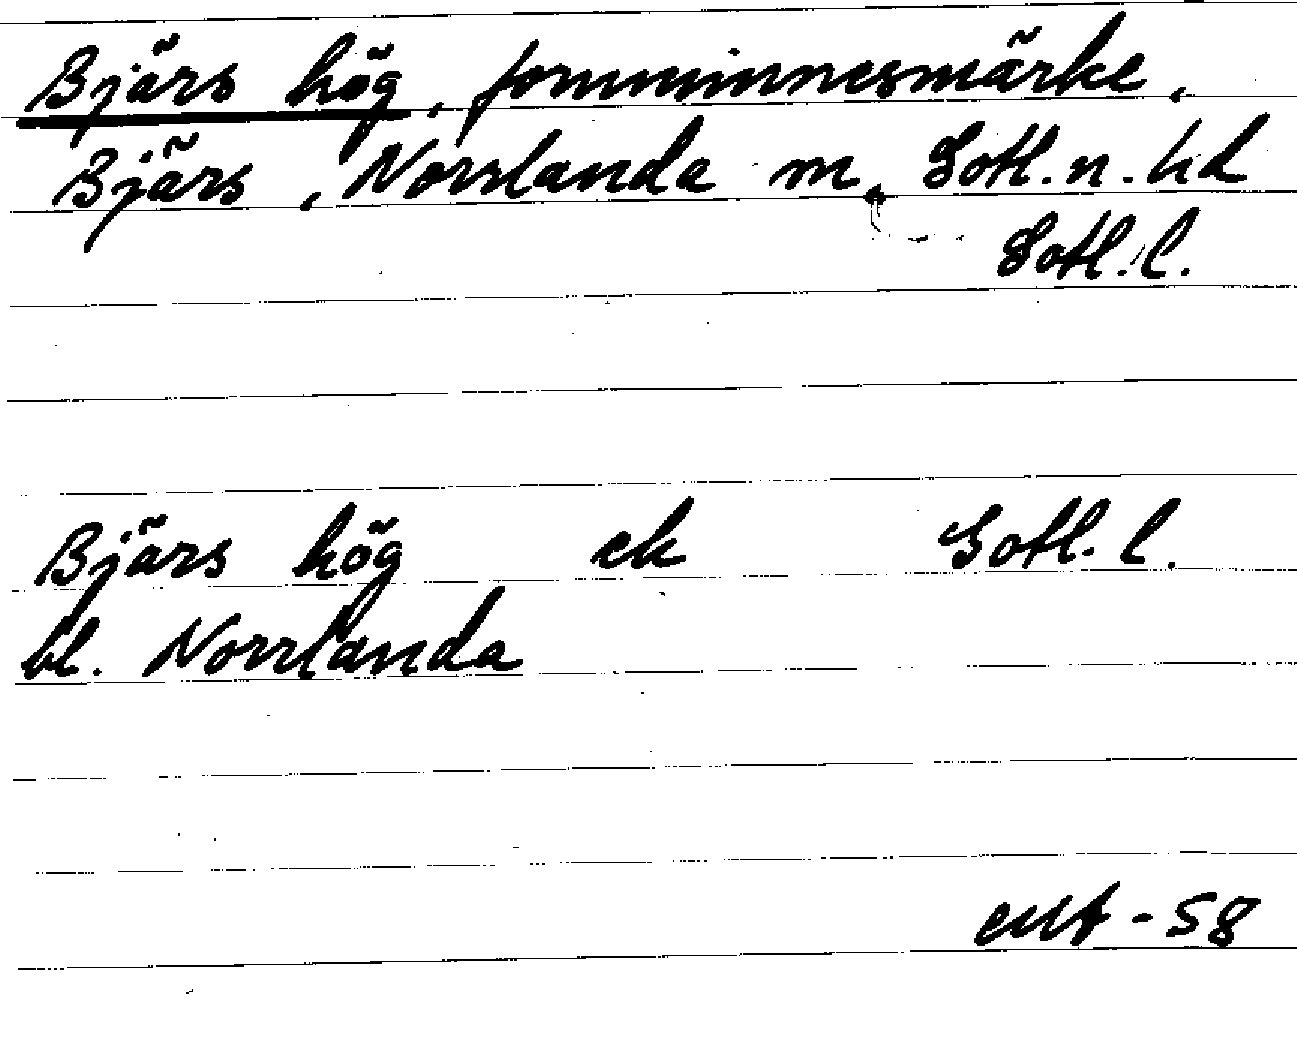 Bjärs hög, fornminnesmärke,
Bjärs, Norrlanda m, Gotl. n. hd
Gotl. l.
Bjärs hög ek Gotl. l.
bl. Norrlanda
-58